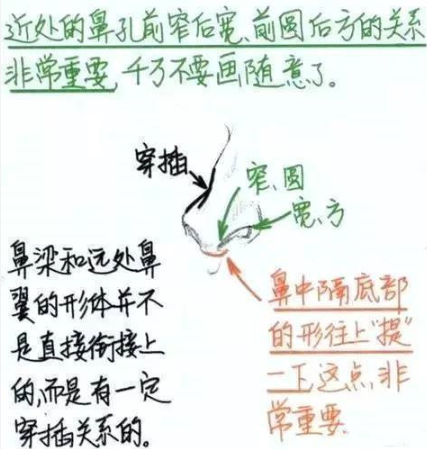 近处的鼻孔前窄后宽、前圆后方的关系
非常重要,千万不要画随意了。
穿插
窄、圆
宽、方
鼻梁和远处鼻
翼的形体并不
是直接衔接上
的,而是有一定
穿插关系的。
鼻中隔底部
的形往上“提”
一下,这点,非
常重要.